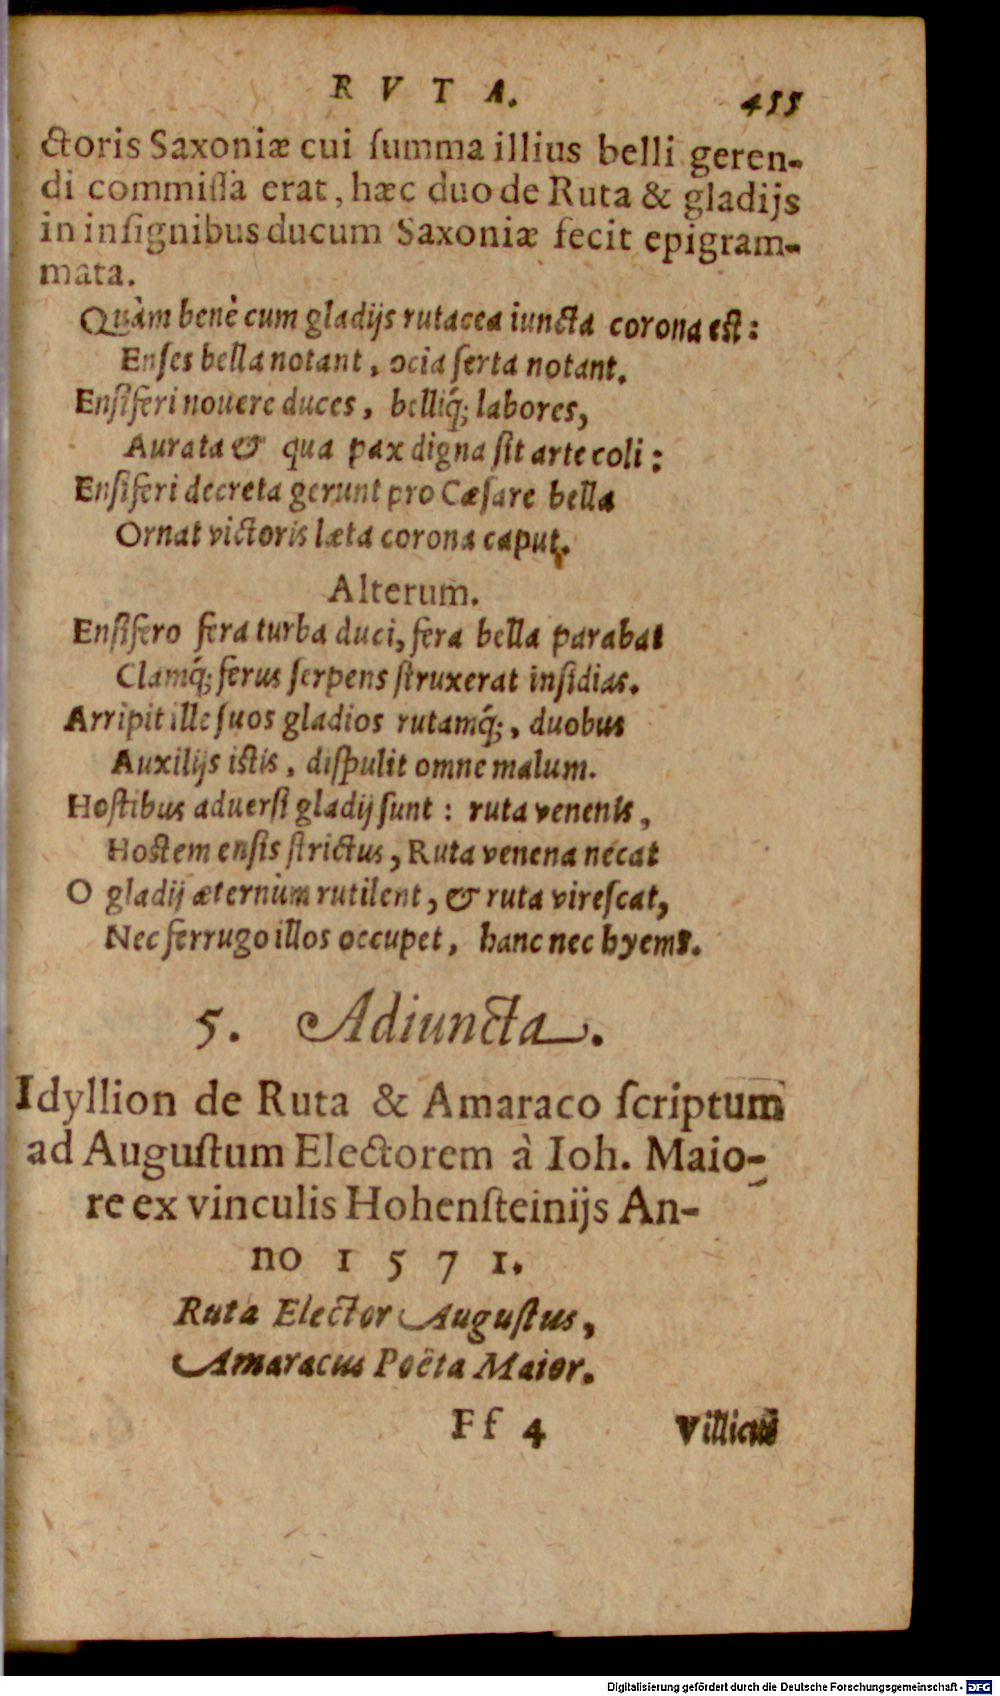 RVTA. 455
ctoris Saxoniæ cui ſumma illius belli geren-
di commiſſa erat, hæc duo de Ruta & gladijs
in inſignibus ducum Saxoniæ fecit epigram-
mata.
Quàm benè cum gladijs rutacea iuncta corona eſt:
Enſes bella notant, ocia ſerta notant.
Enſiferi nouere duces, belliq́; labores,
Aurata & qua pax digna ſit arte coli:
Enſiferi decreta gerunt pro Cæſare bella
Ornat victoris læta corona caput.
Alterum.
Enſifero fera turba duci, fera bella parabat
Clamq́; ferus ſerpens ſtruxerat inſidias.
Arripit ille ſuos gladios rutamq́;, duobus
Auxilijs iſtis, diſpulit omne malum.
Hoſtibus aduerſi gladij ſunt: ruta venenis,
Hoſtem enſis ſtrictus, Ruta venena necat
O gladij æternùm rutilent, & ruta vireſcat,
Nec ferrugo illos occupet, hanc nec hyems.
5. Adiuncta.
Idyllion de Ruta & Amaraco ſcriptum
ad Auguſtum Electorem à Ioh. Maio-
re ex vinculis Hohenſteinijs An-
no 1571.
Ruta Elector Auguſtus,
Amaracus Poëta Maior.
Ff 4 Villicus
Digitalisierung gefördert durch die Deutsche Forschungsgemeinschaft - DFG